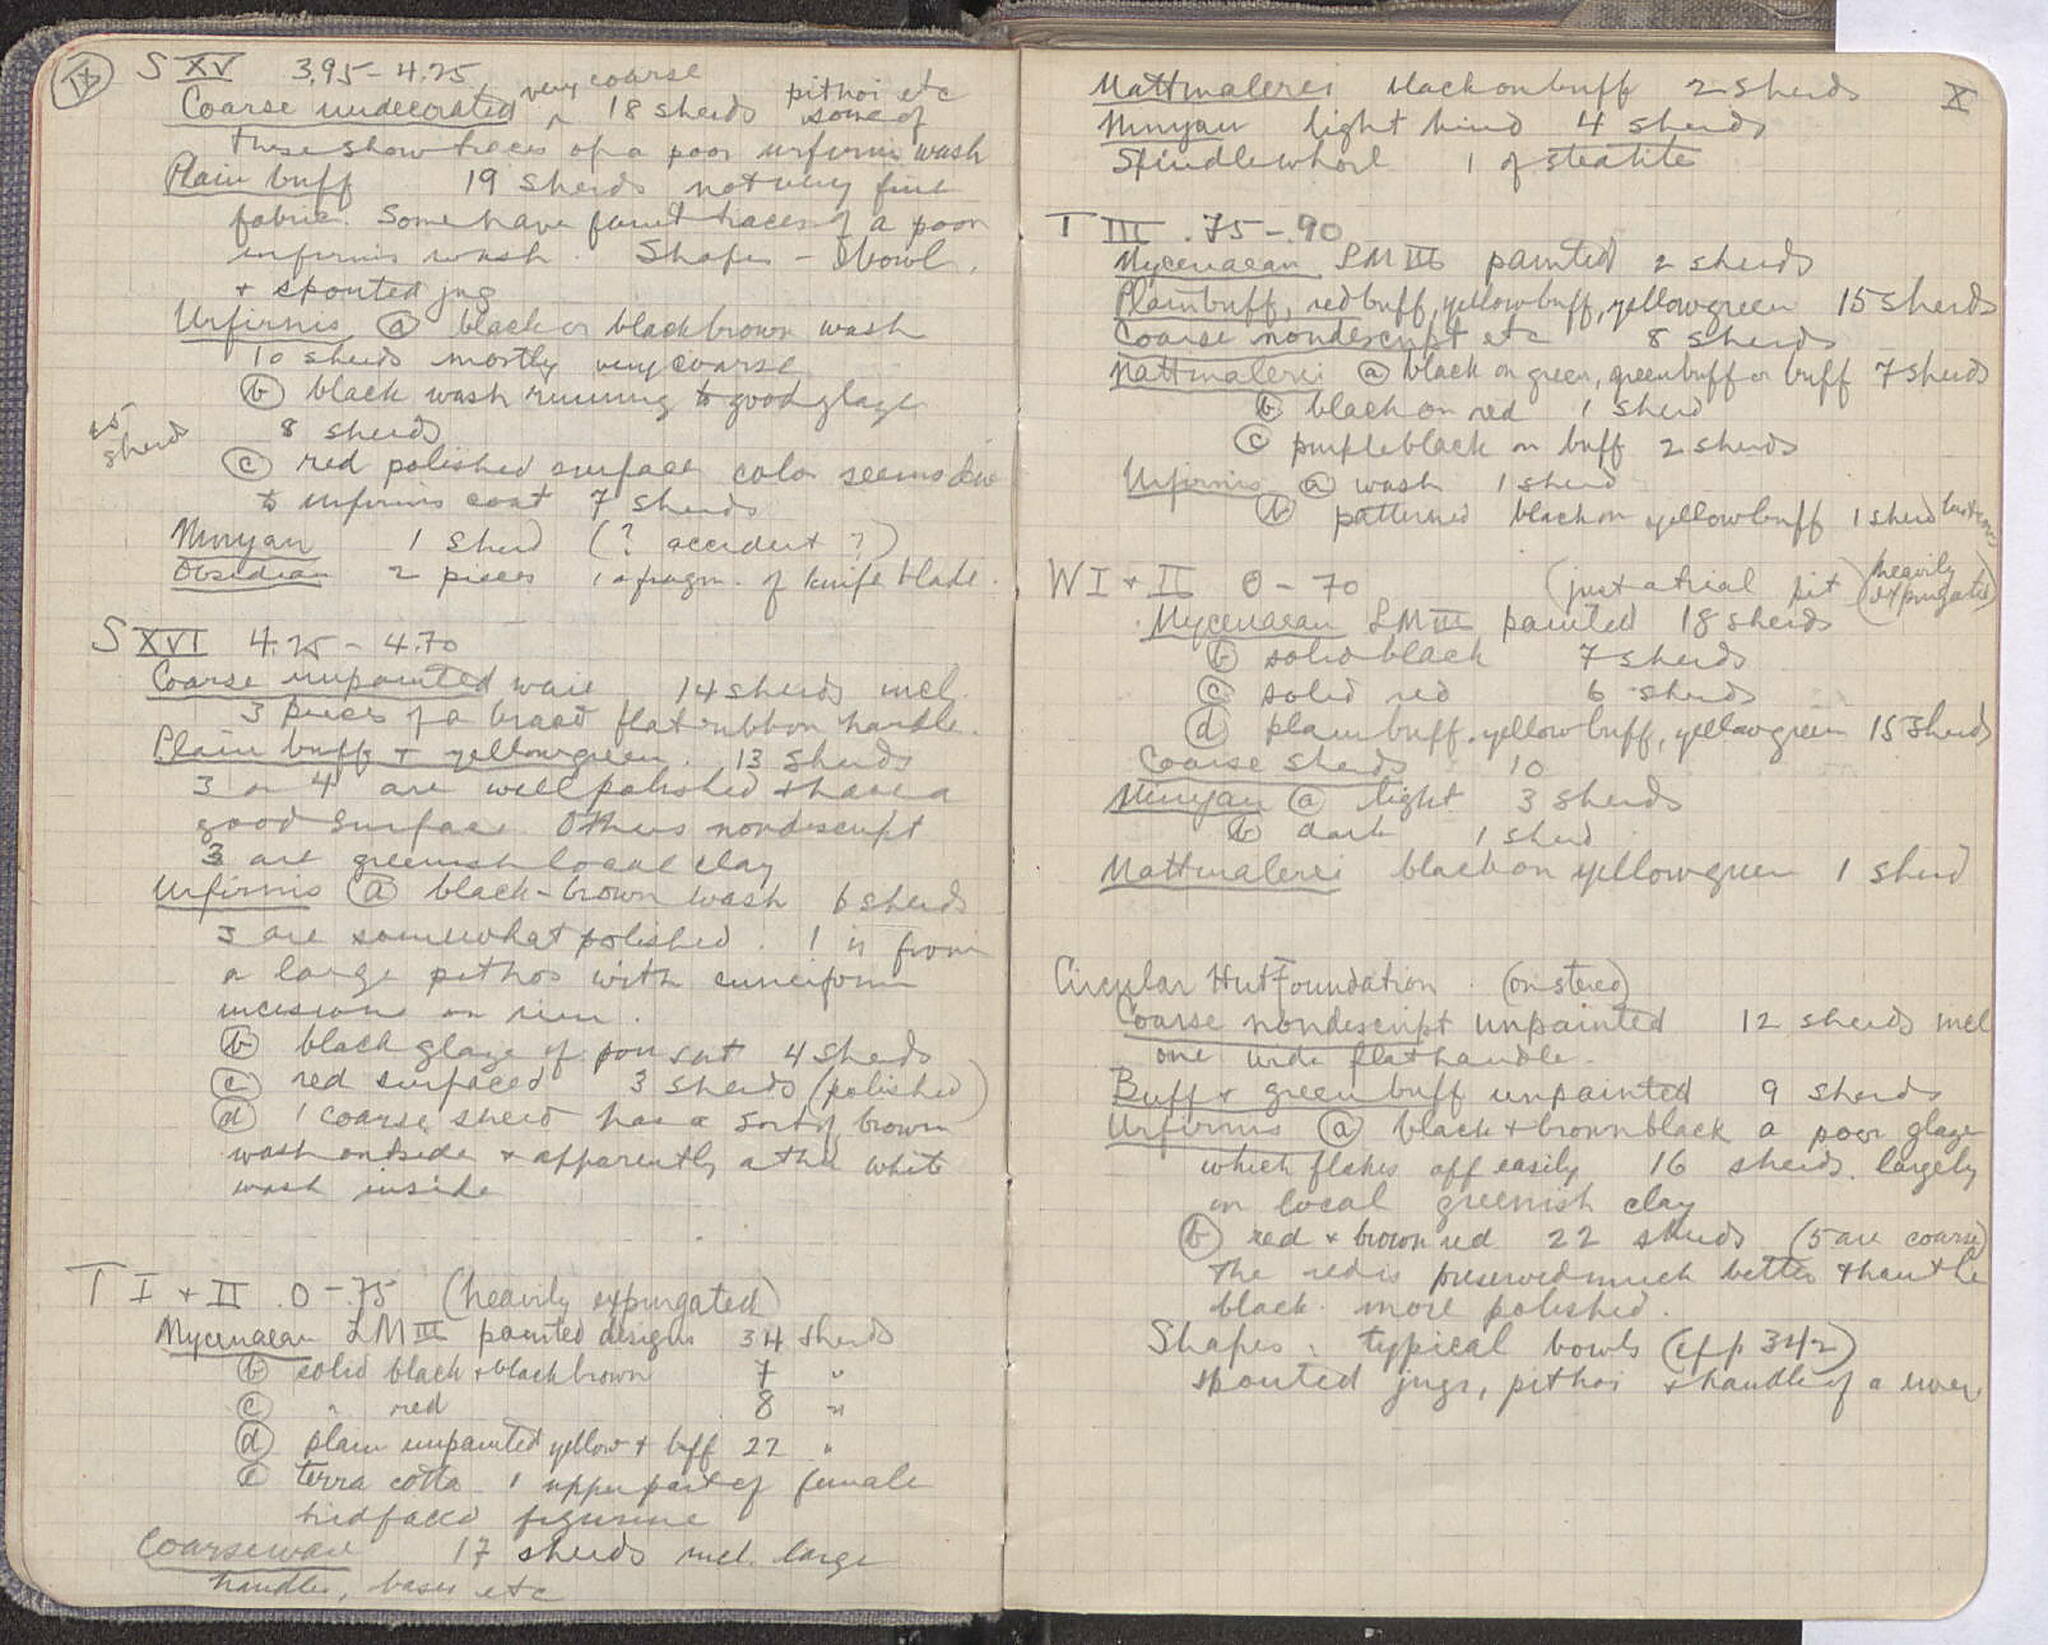 IX
S XV 3.95-4.25
Coarse undecorated ^ very coarse 18 sherds pithoi etc some of
these show traces of a poor urfirnis wash
Plain buff 19 sherds not very fine
fabric. Some have faint traces of a poor
urfirnis wash. Shapes - bowl,
+ spouted jug
Urfirnis (a) black or blackbrown wash
10 sherds mostly very coarse
(b) black wash running to good glaze
8 sherds
25 sherds
(c) red polished surface color seems due
to urfirnis coat 7 sherds
Minyan 1 sherd (? accident ?)
Obsidian 2 pieces 1 a fragm. of knife blade.
S XVI 4.25 - 4.70
Coarse unpainted ware 14 sherds incl.
3 pieces of a broad flat ribbon handle.
Plain buff + yellowgreen. 13 sherds
3 or 4 are well polished + have a
good surface. Others nondescript
3 are greenish local clay
Urfirnis (a) black-brown wash 6 sherds
3 are somewhat polished. 1 is from
a large pithos with cuneiform
incisions on rim.
(b) black glaze of poor sort 4 sherds
(c) red surfaced 3 sherds (polished)
(d) 1 coarse sherd has a sort of brown
wash outside + apparently a thin white
wash inside
T I + II .0-.75 (heavily expurgated)
Mycenaean LM III painted designs 34 sherds
(b) solid black + blackbrown 7 "
(c) " red 8 "
(d) plain unpainted yellow + buff 22 "
(e) terra cotta 1 upper part of female
birdfaced figurine
Coarseware 17 sherds incl. large
handles, bases etc
X
Mattmalerei black on buff 2 sherds
Minyan light kind 4 sherds
Spindlewhorl 1 of steatite
T III .75-.90
Mycenaean LM III painted 2 sherds
Plain buff, redbuff, yellowbuff, yellowgreen 15 sherds
Coarse nondescript etc 8 sherds
Mattmalerei (a) black on green, greenbuff or buff 7 sherds
(b) black on red 1 sherd
(c) purpleblack on buff 2 sherds
Urfirnis (a) wash 1 sherd
(b) patterned black on yellowbuff 1 sherd
W I + II 0-70 (just a trial pit) (heavily expurgated)
Mycenaean LM III painted 18 sherds
(b) solid black 7 sherds
(c) solid red 6 sherds
(d) plain buff, yellowbuff, yellowgreen 15 sherds
Coarse sherds 10
Minyan (a) light 3 sherds
(b) dark 1 sherd
Mattmalerei black on yellowgreen 1 sherd
Circular Hut Foundation. (on stereo)
Coarse nondescript unpainted 12 sherds incl
one wide flat handle.
Buff + greenbuff unpainted 9 sherds
Urfirnis (a) black + brownblack a poor glaze
which flakes off easily 16 sherds. largely
on local greenish clay
(b) red + brownred 22 sherds (5 are coarse)
The red is preserved much better than the
black. more polished.
Shapes: typical bowls (cf p 342)
spouted jugs, pithoi + handle of a